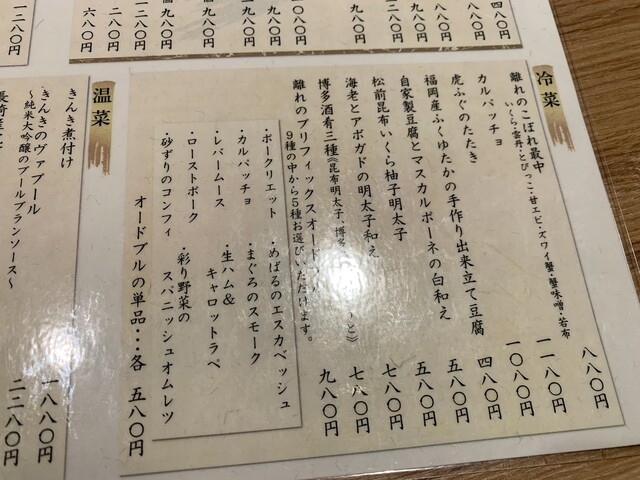 冷菜
離れのこぼれ最中 八八〇円
いくら・雲丹・とびっこ・甘エビ・ズワイ蟹・蟹味噌・若布
カルパッチョ 一一八〇円
虎ふぐのたたき 一〇八〇円
福岡産ふくゆたかの手作り出来立て豆腐 四八〇円
自家製豆腐とマスカルポーネの白和え 五八〇円
松前昆布いくら柚子明太子 五八〇円
海老とアボガドの明太子和え 七八〇円
博多酒肴三種《昆布明太子、博多 と》 七八〇円
離れのプリフィックスオード 九八〇円
9種の中から5種お選びいただけます。
・ポークリエット
・カルパッチョ
・レバームース
・ローストポーク
・砂ずりのコンフィ
・めばるのエスカベッシュ
・まぐろのスモーク
・生ハム&
キャロットラペ
・彩り野菜の
スパニッシュオムレツ
オードブルの単品・・・各 五八〇円
温菜
きんき煮付け 一八八〇円
きんきのヴァプール 二二八〇円
～純米大吟醸のブールブランソース～